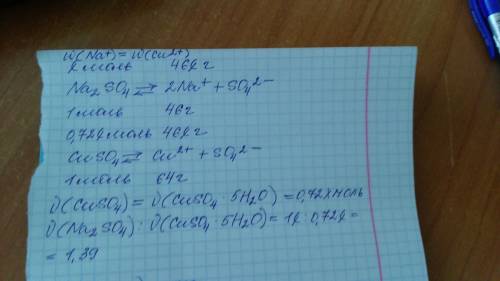 W(Na⁺) = W(Cu²⁺)
x моль 46x г
Na₂SO₄ ⇄ 2Na⁺ + SO₄²⁻
1 моль 46 г
0,72x моль 46x г
CuSO₄ ⇄ Cu²⁺ + SO₄²⁻
1 моль 64 г
ν(CuSO₄) = ν(CuSO₄ · 5H₂O) = 0,72x моль
ν(Na₂SO₄) : ν(CuSO₄ · 5H₂O) = 1x : 0,72x =
= 1,39